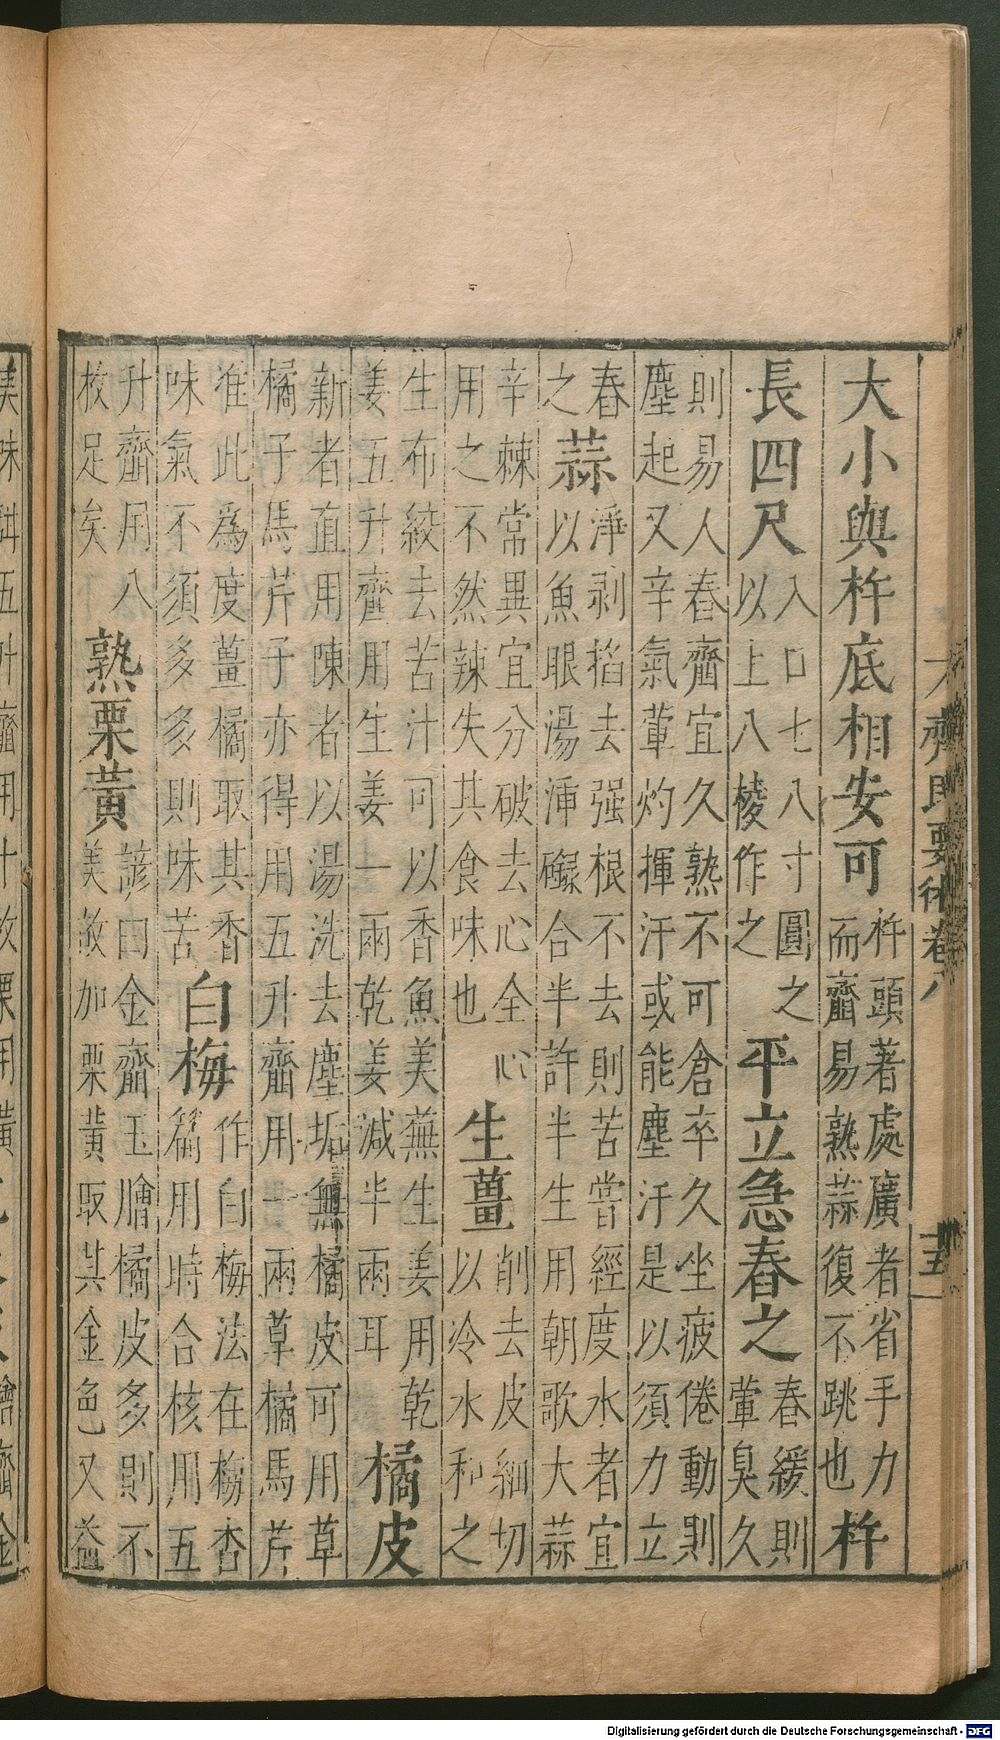 齊民要術卷八 十五
大小與杵底相安可杵頭著處廣者省手力
而齏易熟蒜復不跳也杵
長四尺入口七八寸圓之
以上八棱作之平立急舂之舂緩則
葷臭久
則易人舂齏宜久熟不可倉卒久坐疲倦動則
塵起又辛氣葷灼揮汗或能塵汙是以須力立
舂
之蒜淨剥掐去强根不去則苦當經度水者宜
以魚眼湯合半許半生用朝歌大蒜
辛棘常異宜分破去心全心
用之不然辣失其食味也生薑削去皮細切
以冷水和之
生布絞去苦汁可以香魚美蕪生姜用乾
姜五升齏用生姜一兩乾姜減半兩耳橘皮
新者直用陳者以湯洗去塵垢無橘皮可用草
橘子馬芹子亦得用五升齏用一兩草橘馬芹
准此爲度薑橘取其香
味氣不須多多則味苦白梅作白梅法在梅杏
篇用時合核用五
升齏用八
枚足矣熟栗黃諺曰金齏玉膾橘皮多則不
美故加栗黃取其金色又益
Digitalisierung gefördert durch die Deutsche Forschungsgemeinschaft - DFG